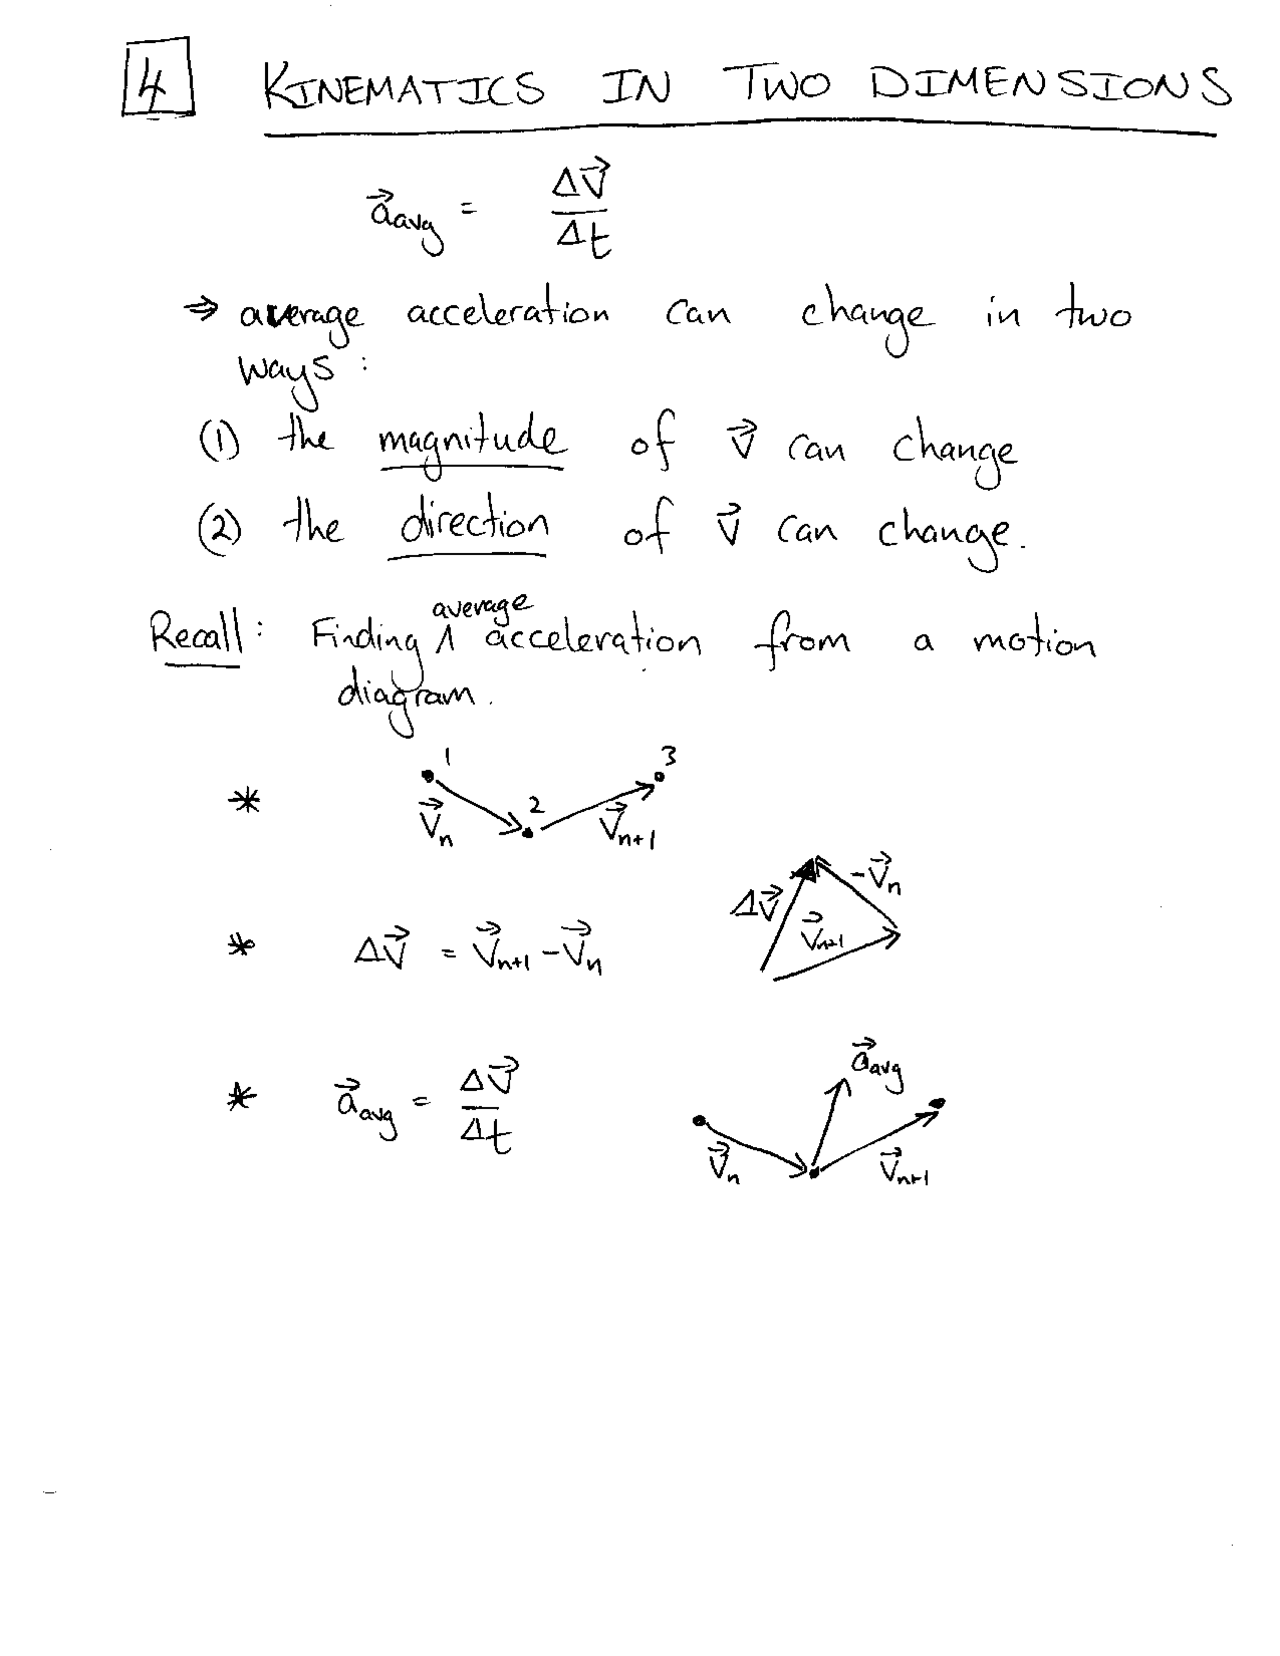 4 KINEMATICS IN TWO DIMENSIONS
a⃗avg = Δv⃗/Δt
⇒ average acceleration can change in two
ways:
(1) the magnitude of v⃗ can change
(2) the direction of v⃗ can change.
average
Recall: Finding ∧ acceleration from a motion
diagram.
1 3
* 2
v⃗n v⃗n+1
Δv⃗ -v⃗n
* Δv⃗ = v⃗n+1 - v⃗n v⃗n+1
a⃗avg
* a⃗avg = Δv⃗/Δt
v⃗n v⃗n+1